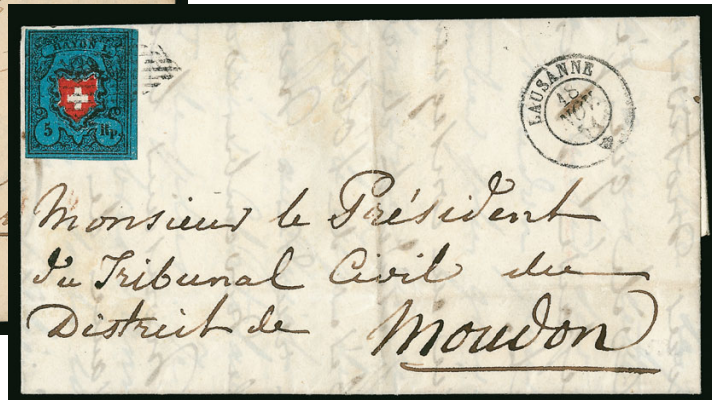 RAYON I.
5 Rp.
LAUSANNE
18
NOV.
Monsieur le Président
du Tribunal Civil du
District de Moudon